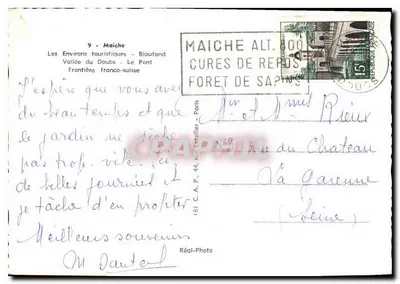 9 - Maiche
Les Environs touristiques - Biaufond
Vallée du Doubs - Le Pont
Frontière franco-suisse
MAICHE ALT. 800
CURES DE REPOS
FORET DE SAPINS
15F
J'espère que vous avez
du beau temps et que
le jardin ne sèche
pas trop vite. Ici
de belles journées et
je tâche d'en profiter
Meilleurs souvenirs
Mr et Mme
rue du Chateau
La Garenne
(Seine)
Réal-Photo
CPArama.com